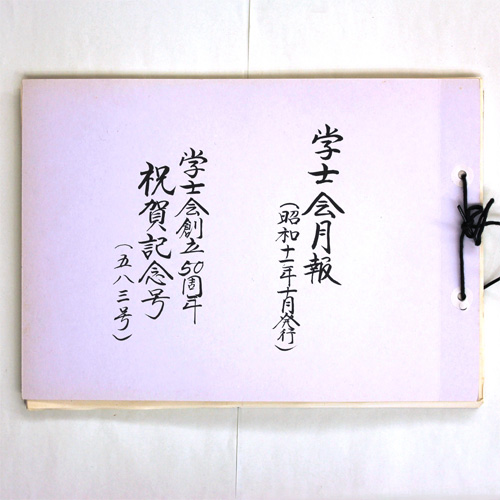 学士会月報
(昭和十一年十月発行)
学士会創立50周年
祝賀記念号
(五八三号)